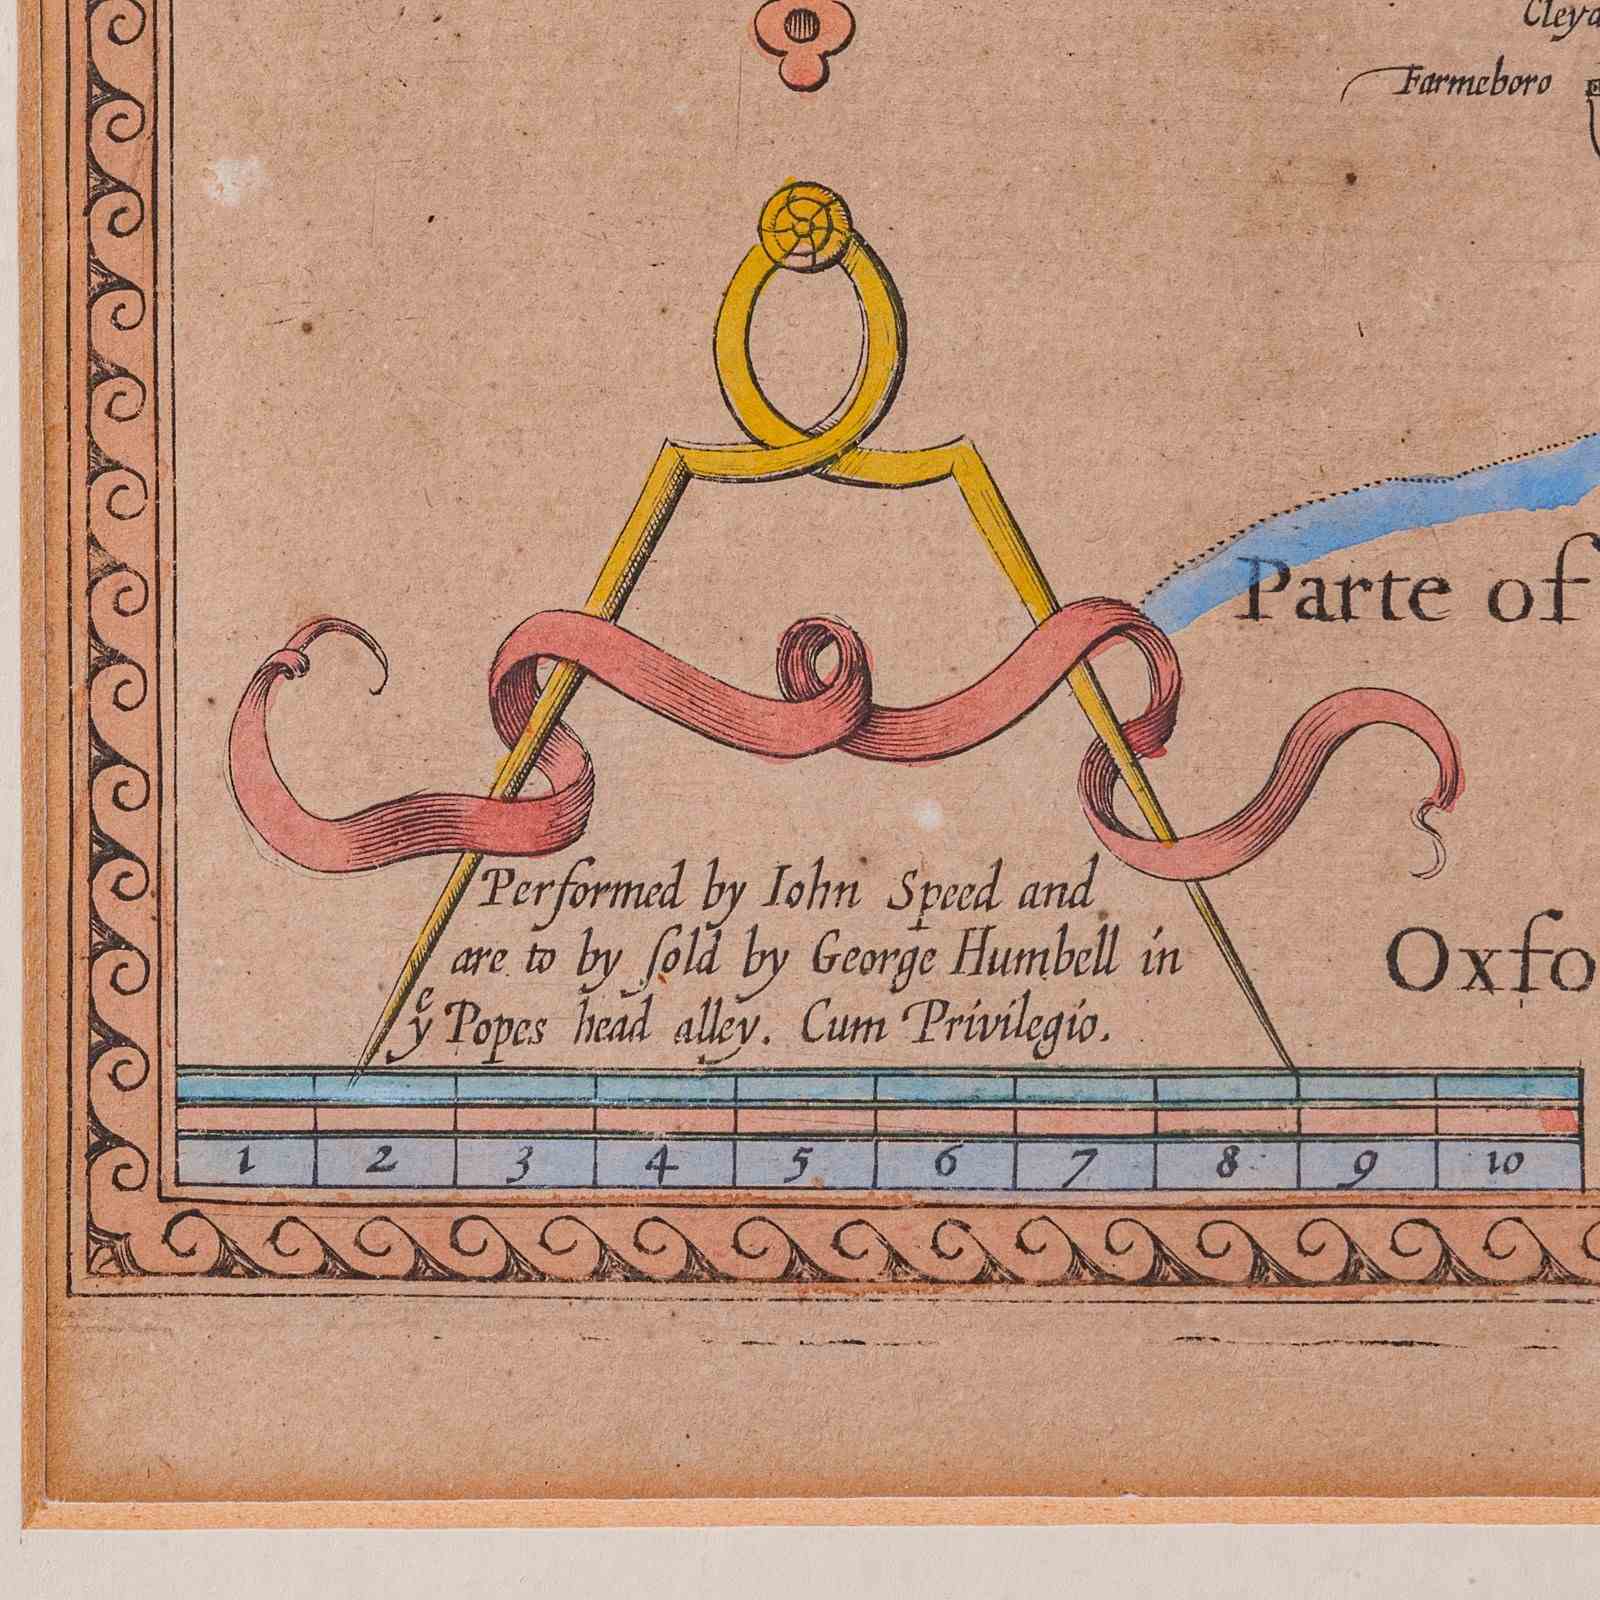 Cleyd
Farmeboro
Parte of
Performed by Iohn Speed and
are to by ſold by George Humbell in
yͤ Popes head alley. Cum Privilegio.
Oxfo
1 2 3 4 5 6 7 8 9 10